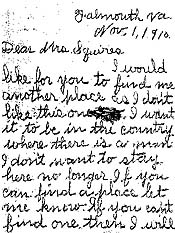 Falmouth Va.
Nov. 1, 1910.
Dear Mrs. Squires
I would
like for you to find me
another place as I don't
like this one I want
it to be in the country
where there is a man
I don't want to stay
here no longer. If you
can find a place let
me know. If you can't
find one then I will